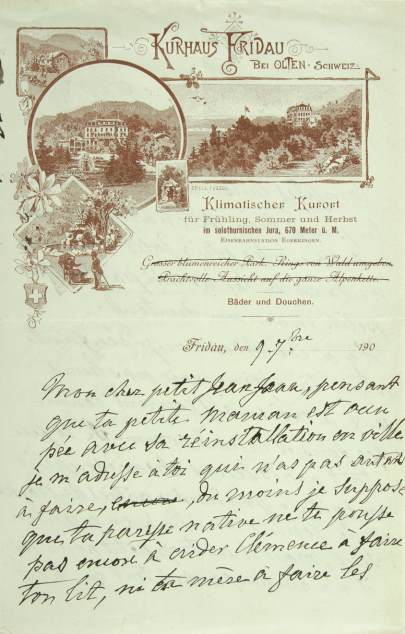 KURHAUS FRIDAU
BEI OLTEN - SCHWEIZ.
Klimatischer Kurort
für Frühling, Sommer und Herbst
im solothurnischen Jura, 670 Meter ü. M.
EISENBAHNSTATION EGERKINGEN.
Grosser blumenreicher Park. Rings von Wald umgeben.
Prachtvolle Aussicht auf die ganze Alpenkette.
Bäder und Douchen.
Fridau, den 9 7bre 190
Mon cher petit Jean Jean, pensant
que ta petite maman est occu
pée avec sa réinstallation en ville
je m'adresse à toi qui n'as pas autant
à faire, du moins je suppose
que ta paresse native ne te pousse
pas encore à aider Clémence à faire
ton lit, ni ta mère à faire les